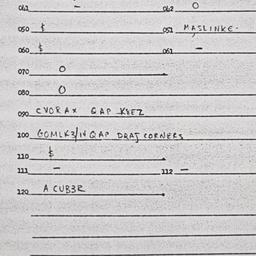 041 – 042 0
050 $ 051 MASLINKE.
060 $ 061 –
070 0
080 0
090 CVORAX GAP KYEZ
100 GOMLK3/IN GAP DRAJ CORNERS
110 $
111 – 112 –
120 A CUB3R